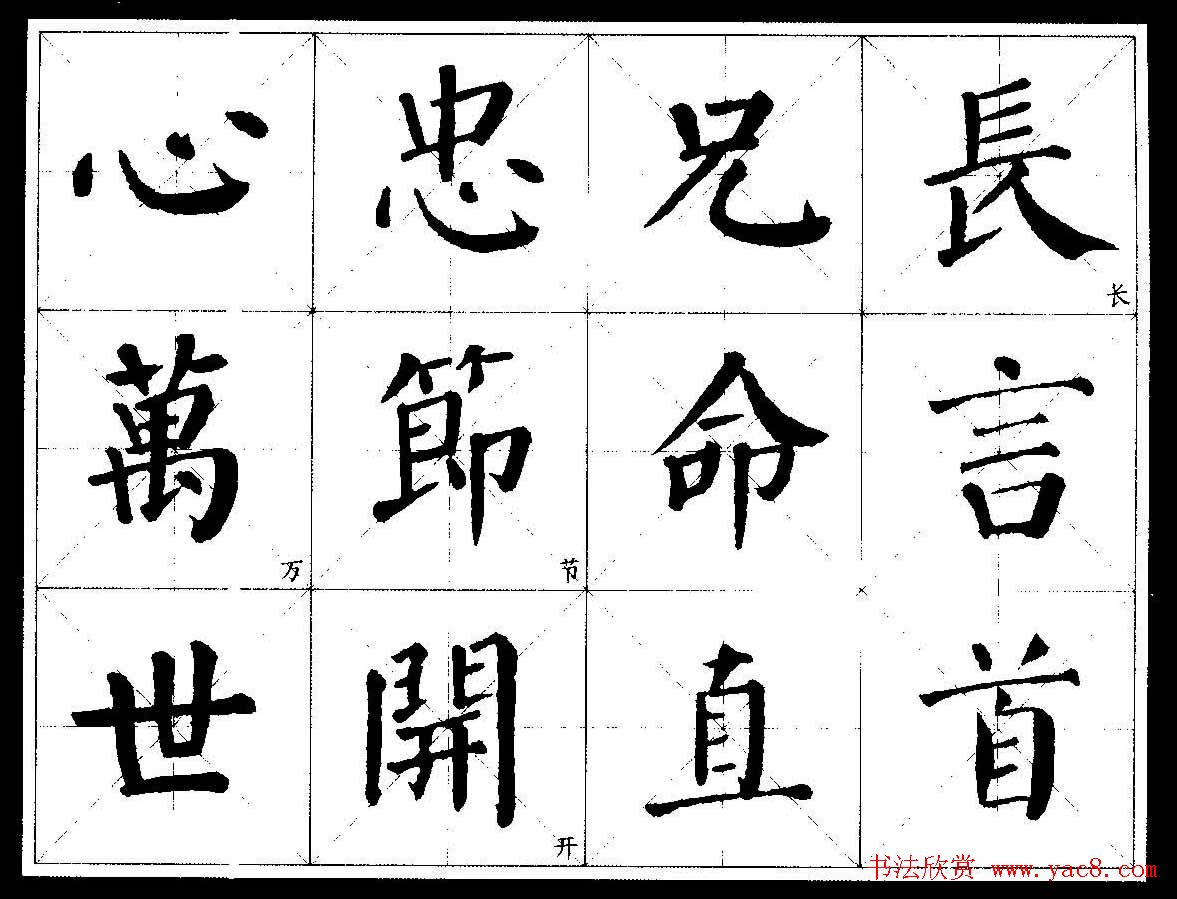 心忠兄長
长
萬節命言
万 节
世開直首
开
书法欣赏 www.yac8.com